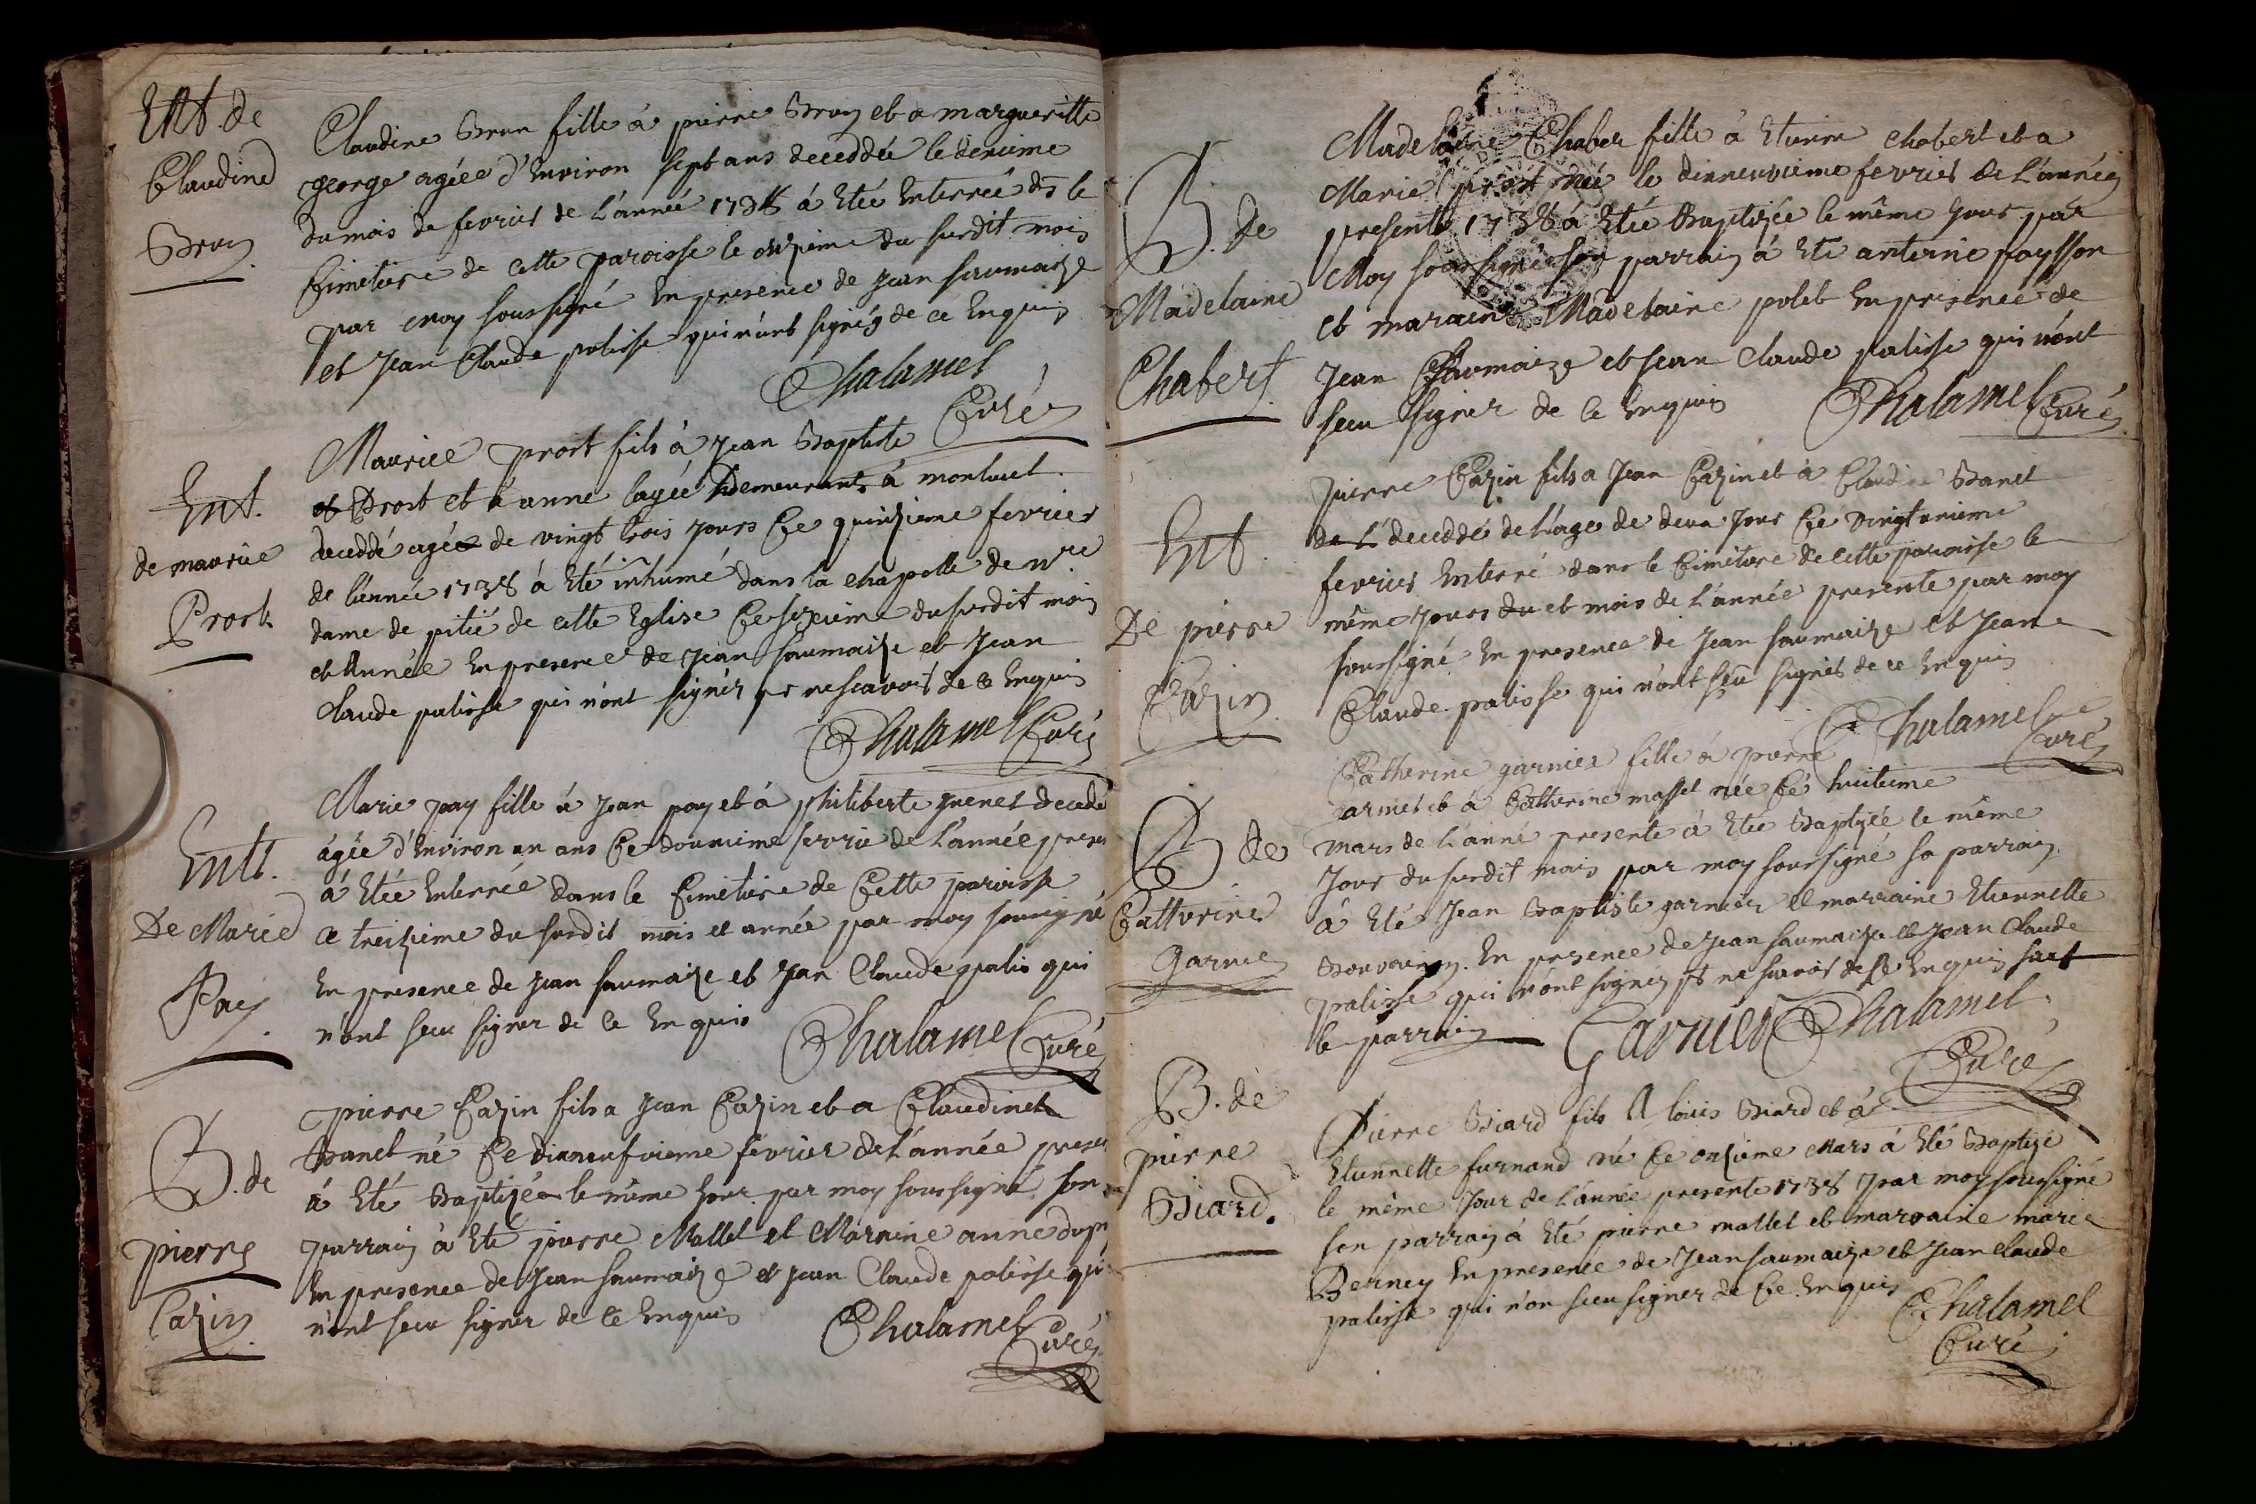 Ent. de
Claudine
Brun
Claudine Brun fille à pierre Brun et a margueritte
george agéee d'Environ sept ans deceddée le dixieme
du mois de fevrier de L'année 1738 à Etée Enterrée ds le
Cimetiere de cette paroisse le onzieme du surdit mois
par moy soussigné En presence de Jean saumaize
et Jean Claude palisse qui n'ont signés de ce Enquis
Chalamel
Curé
Ent.
de maurice
Prost
Maurice prost fils à Jean Baptiste
et Prost et à anne Demeurants à montluel
deceddé agée de vingt trois Jours Ce quinzieme fevrier
de l'année 1738 à Eté inhumé dans la chapelle de nre
dame de pitié de cette Eglise Ce sezieme du surdit mois
et Année En presence de Jean saumaize et Jean
Claude palisse qui n'ont signér pr ne scavoir de ce Enquis
Chalamel Curé
Entt.
De Marie
Pay
Marie pay fille à Jean pay et à philiberte decedé
àgée d'Environ un ans Ce douzieme fevrie de L'année prese
à Etée Enterrée dans le Cimetiere de Cette paroisse
Ce treizieme du surdit mois et année par moy soussigné
En presence de Jean saumaize et Jean Claude palis qui
n'ont seeu signer de Ce Enquis
Chalamel Curé
B. de
pierre
Cazin
pierre Cazin fils a Jean Cazin et a Claudine
Banet né Ce dixneufvieme fevrier de L'année prese
à Eté Baptizée le même Jour par moy soussigné son
parrain à Ete pierre Mallet et Marraine anne dup
En presence de Jean saumaize et Jean Claude palisse qui
n'ont seeu signer de Ce Enquis
Chalamel Curé
B. de
Madelaine
Chabert
Madelaine Chaber fille à Etienne Chabert et a
Marie prost née le dixneuvieme fevrier de L'année
presente 1738 à Etée Baptizée le même Jour par
Moy soussigné son parrain à Ete antoine faysson
et maraine Madelaine polet En presence de
Jean Saumaize et Jean Claude palisse qui n'ont
seeu signer de Ce Enquis
Chalamel Curé
Ent.
De pierre
Cazin
pierre Cazin fils a Jean Cazin et à Claudine Banet
de L' deceddé de L'age de deux Jour Ce vingt unieme
fevrier Enterré dans le Cimetiere de cette paroisse le
même Jours du et mois de L'année presente par moy
soussigné En presence de Jean saumaize et Jean
Claude palisse qui n'ont seu signér de ce Enquis
Chalamel
Curé
B de
Catterine
Garnier
Catherine garnier fille à pierre
garnier et à Catherine masset née Cé huitieme
mars de L'anné presente à Etée Baptizée le même
Jour du surdit mois par moy soussigné sa parrain
à Eté Jean Baptiste garnier et marraine Etiennette
En presence de Jean saumaize et Jean Claude
palisse qui n'ont signer pr ne savoir de ce Enquis sauf
le parrain
Garnier Chalamel
Curé
B. de
pierre
Biard.
Pierre Biard fils A louis Biard et à
Etiennette furnand né Ce onzieme Mars à Eté Baptizé
le même Jour de L'année presente 1738 par moy soussigné
son parrain à Eté pierre mallet et marraine marie
Berney En presence de Jean saumaize et Jean Claude
palisse qui n'on seeu signer de Ce Enquis
Chalamel
Curé